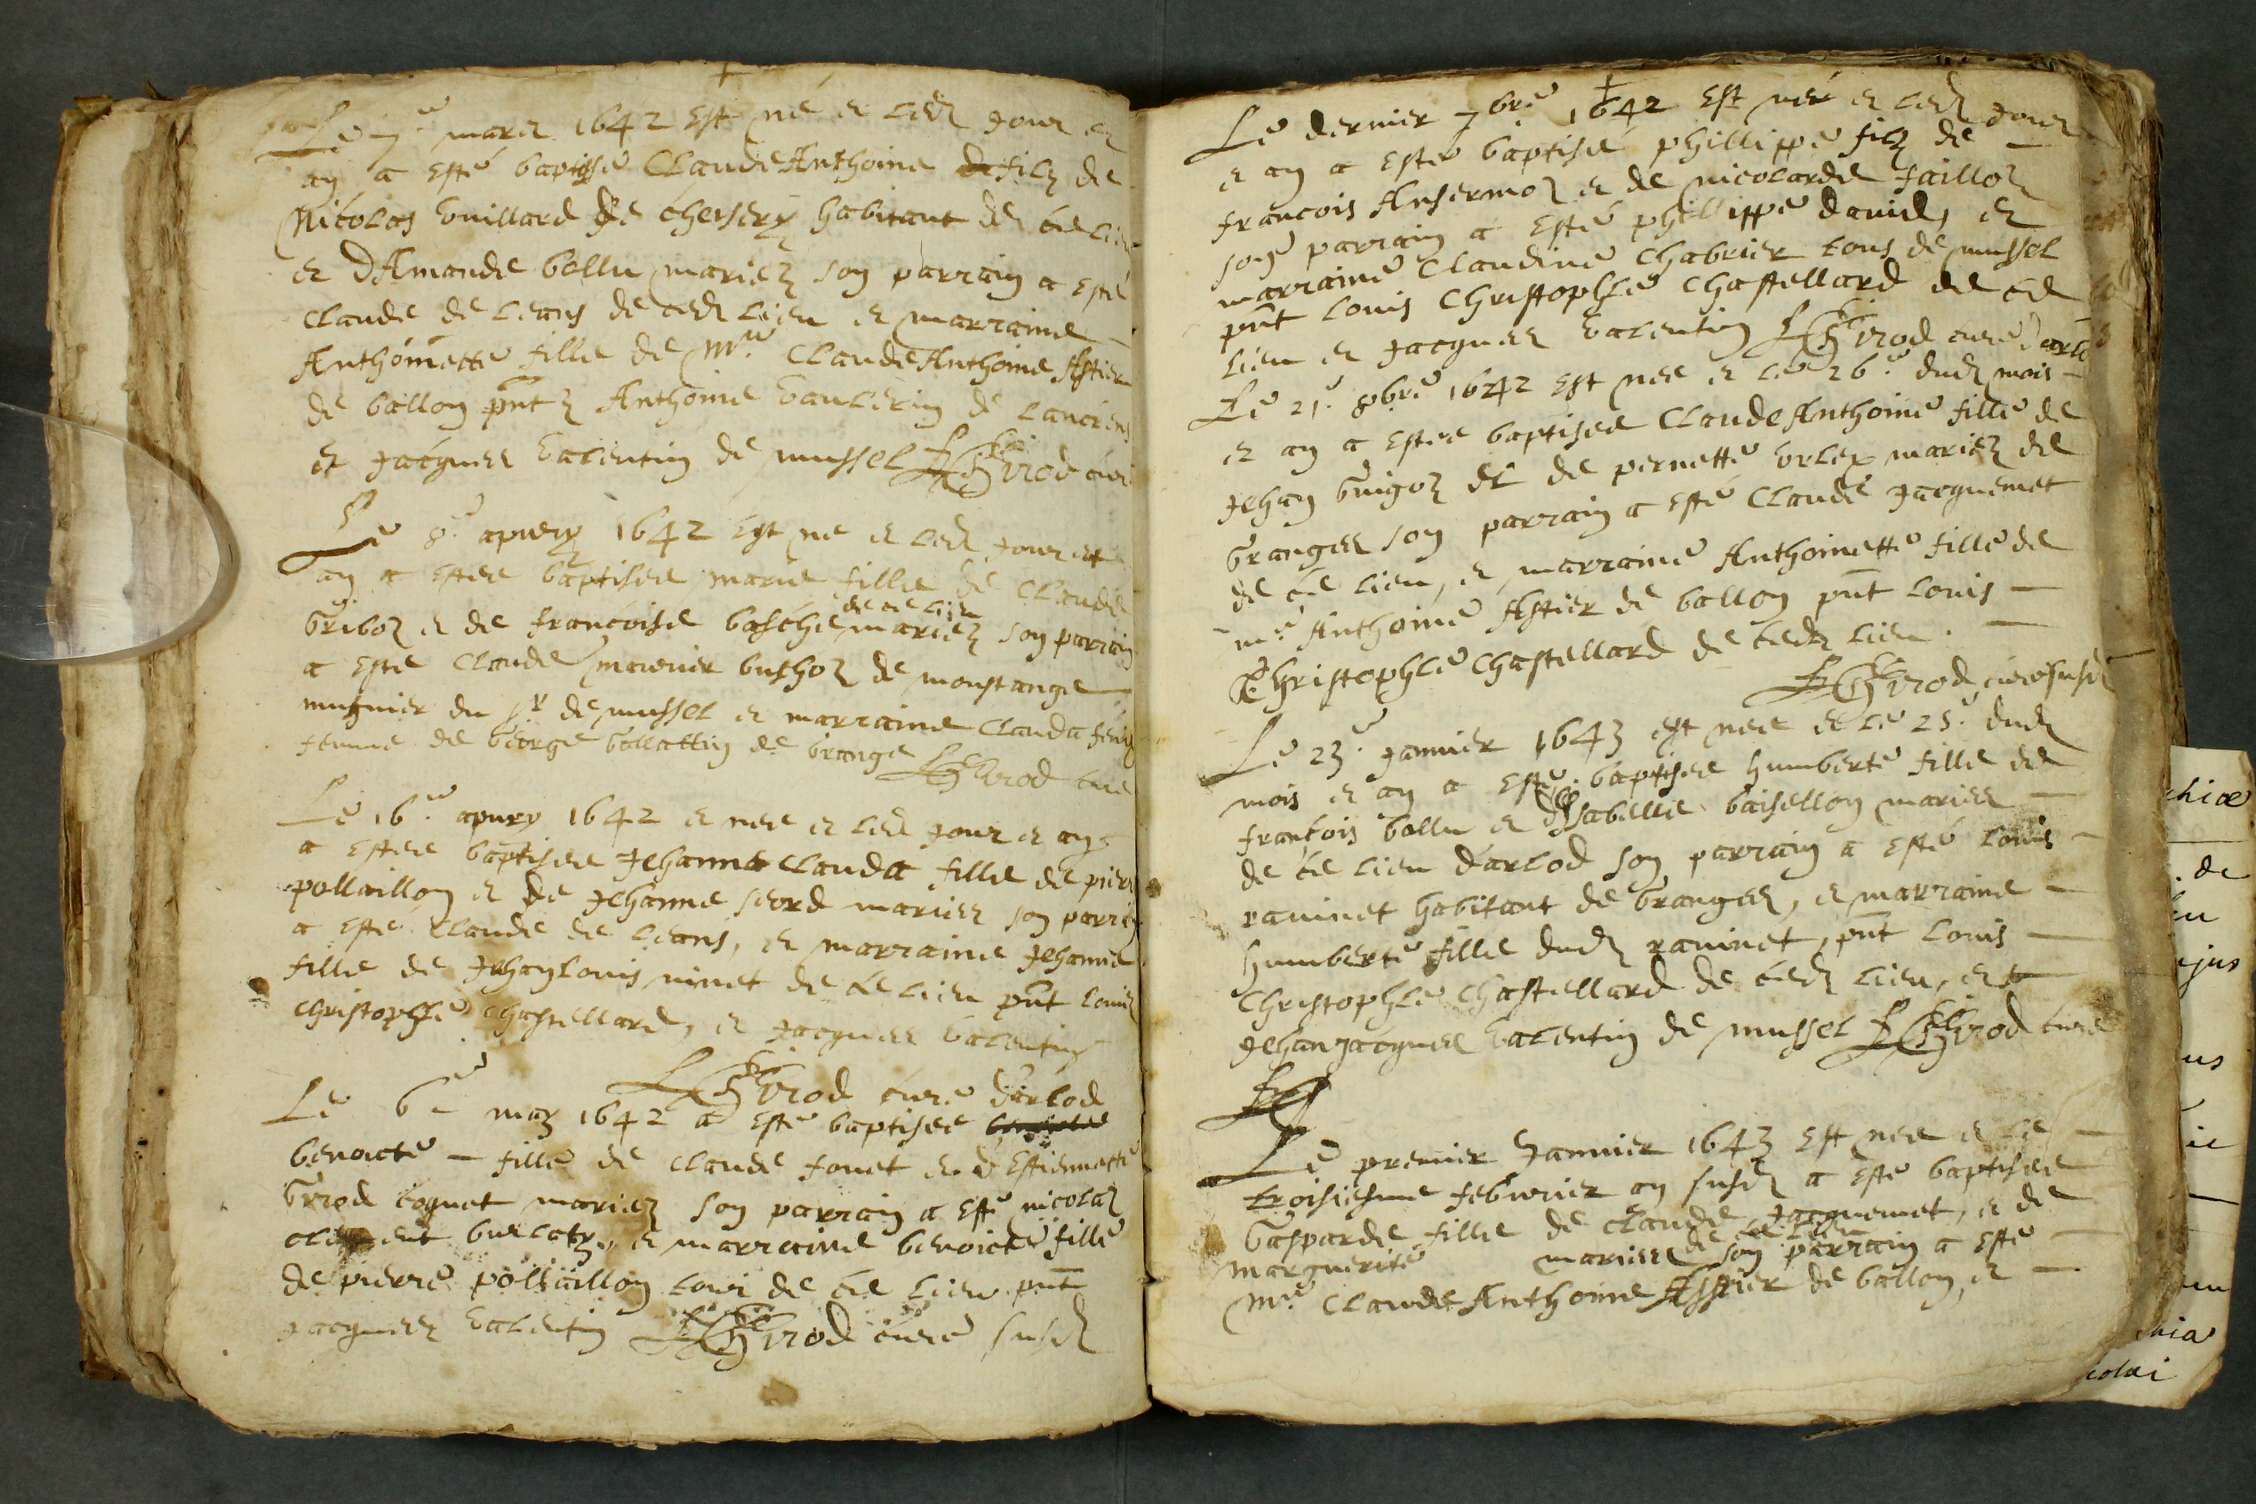 Le 7e mars 1642 Est né et led jour et
an a esté baptisé Claude Anthoine filz de
Nicolas Vuillard de cheisery habitant de ce lieu
et D Amande bollu mariez son parrain a esté
Claude de Leans de ced lieu et marraine
Anthoinette fille de Mre Claude Anthoine Astier
de ballon pnts Anthoine de Lancrens
et Jacques Valentin de mussel Girod curé
Le 8e apvry 1642 Est ne et led jour et
an a estee baptisee marie fille de Claude
Griboz et de francoise basche de ce lieu mariez son parrain
a este Claude buthoz de monstange
mugnier du sr de mussel et marraine Clauda
femme de George ballattin de Grange Girod cure
Le 16e apvry 1642 et nee et led jour et an
a estee baptisee Jehanne Clauda fille de pierre
pollaillon et de Jehanne mariez son parrain
a esté Claude de Leans, et marraine Jehanne
fille de Jehan Louis ninet de ce lieu pnt Louis
Christophle Chastellard, et Jacques Valentin
Girod curé d'arlod
Le 6e may 1642 a esté baptisee
benoicte fille de Claude fouet et d'Estiennette
Girod coquet mariez son parrain a esté nicolas
et marraine benoicte fille
de pierre pollaillon de ce lieu pnt
Jacques Valentin Girod curé susd
Le dernier 7bre 1642 Est né et led jour
et an a esté baptisé phillippe filz de
francois Ansermoz et de nicolarde Jailloz
son parrain a esté phillippe david, et
marraine Claudine Chabrier tous de mussel
pnt Louis Christophle Chastellard de ce
lieu et Jacques Valentin Girod curé d'arlod
Le 21e 8bre 1642 Est nee et le 26e dud mois
et an a estee baptisee Claude Anthoine fille de
Jehan Guigoz et de pernette mariez de
Granges son parrain a esté Claude Jacquemet
de ce lieu, et marraine Anthoinette fille de
mre Anthoine Astier de ballon pnt Louis
Christophle Chastellard de ced lieu.
Girod, curé susd
Le 23e Janvier 1643 est nee et le 25e dud
mois et an a esté baptisee humberte fille de
francois bollu et d'Isabelle baisellon mariez
de ce lieu d'arlod son parrain a esté Louis
raninet habitant de Granges, et marraine
humberte fille dud raninet, pnt Louis
Christophle Chastellard de ced lieu, et
Jehan Jacques Valentin de mussel Girod curé
Le premier Janvier 1643 Est nee et le
troisiesme febvrier an susd a esté baptisee
Gasparde fille de Claude Jacquemet, et de
marguerite mariez de ce lieu son parrain a esté
Mre Claude Anthoine Astier de ballon, et